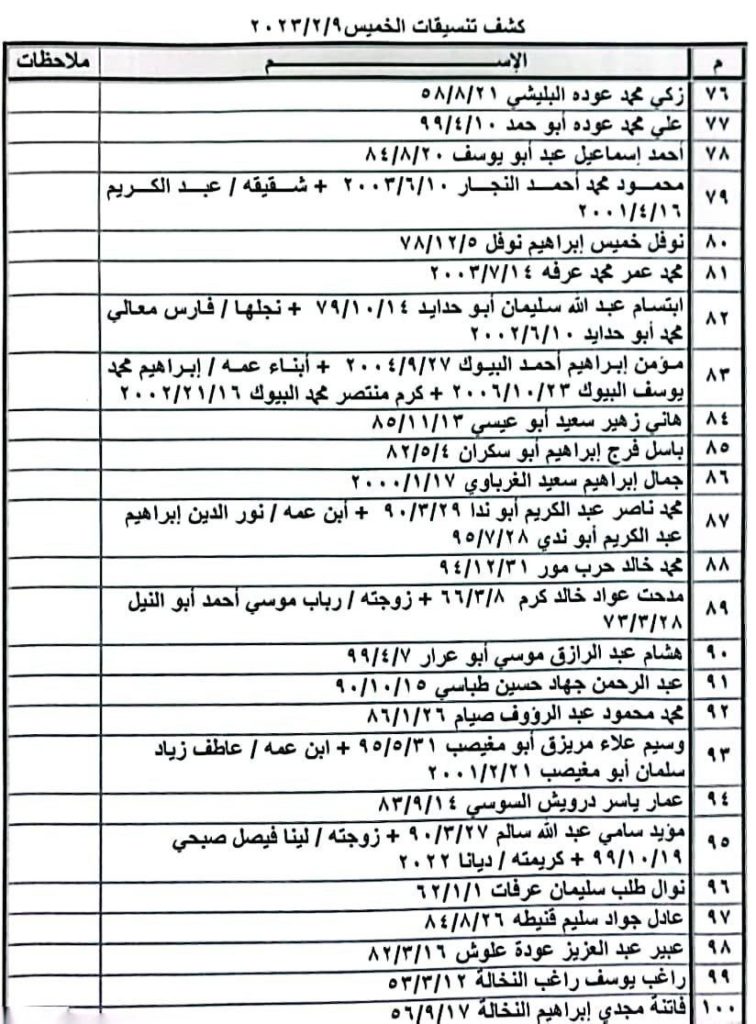 كشف تنسيقات الخميس ٢٠٢٣/٢/٩
م الإســـــــم ملاحظات
٧٦ زكي محمد عوده البليشي ٥٨/٨/٢١
٧٧ علي محمد عوده أبو حمد ٩٩/٤/١٠
٧٨ أحمد إسماعيل عبد أبو يوسف ٨٤/٨/٢٠
٧٩ محمـــود محمد أحمـــد النجـــار ٢٠٠٣/٦/١٠ + شـــقيقه / عبـــد الكـــريم
٢٠٠١/٤/١٦
٨٠ نوفل خميس إبراهيم نوفل ٧٨/١٢/٥
٨١ محمد عمر محمد عرفه ٢٠٠٣/٧/١٤
٨٢ ابتسام عبد الله سليمان أبو حدايد ٧٩/١٠/١٤ + نجلها / فارس معالي
محمد أبو حدايد ٢٠٠٢/٦/١٠
٨٣ مـؤمن إبـراهيم أحمـد البيـوك ٢٠٠٤/٩/٢٧ + أبنـاء عمـه / إبـراهيم محمد
يوسف البيوك ٢٠٠٦/١٠/٢٣ + كرم منتصر محمد البيوك ٢٠٠٢/٢١/١٦
٨٤ هاني زهير سعيد أبو عيسي ٨٥/١١/١٣
٨٥ باسل فرج إبراهيم أبو سكران ٨٢/٥/٤
٨٦ جمال إبراهيم سعيد الغرباوي ٢٠٠٠/١/١٧
٨٧ محمد ناصر عبد الكريم أبو ندا ٩٠/٣/٢٩ + أبن عمه / نور الدين إبراهيم
عبد الكريم أبو ندي ٩٥/٧/٢٨
٨٨ محمد خالد حرب مور ٩٤/١٢/٣١
٨٩ مدحت عواد خالد كرم ٦٦/٣/٨ + زوجته / رباب موسي أحمد أبو النيل
٧٣/٣/٢٨
٩٠ هشام عبد الرازق موسي أبو عرار ٩٩/٤/٧
٩١ عبد الرحمن جهاد حسين طباسي ٩٠/١٠/١٥
٩٢ محمد محمود عبد الرؤوف صيام ٨٦/١/٢٦
٩٣ وسيم علاء مريزق أبو مغيصب ٩٥/٥/٣١ + ابن عمه / عاطف زياد
سلمان أبو مغيصب ٢٠٠١/٢/٢١
٩٤ عمار ياسر درويش السوسي ٨٣/٩/١٤
٩٥ مؤيد سامي عبد الله سالم ٩٠/٣/٢٧ + زوجته / لينا فيصل صبحي
٩٩/١٠/١٩ + كريمته / ديانا ٢٠٢٢
٩٦ نوال طلب سليمان عرفات ٦٢/١/١
٩٧ عادل جواد سليم قنيطه ٨٤/٨/٢٦
٩٨ عبير عبد العزيز عودة علوش ٨٢/٣/١٦
٩٩ راغب يوسف راغب النخالة ٥٣/٣/١٢
١٠٠ فاتنة مجدي إبراهيم النخالة ٥٦/٩/١٧